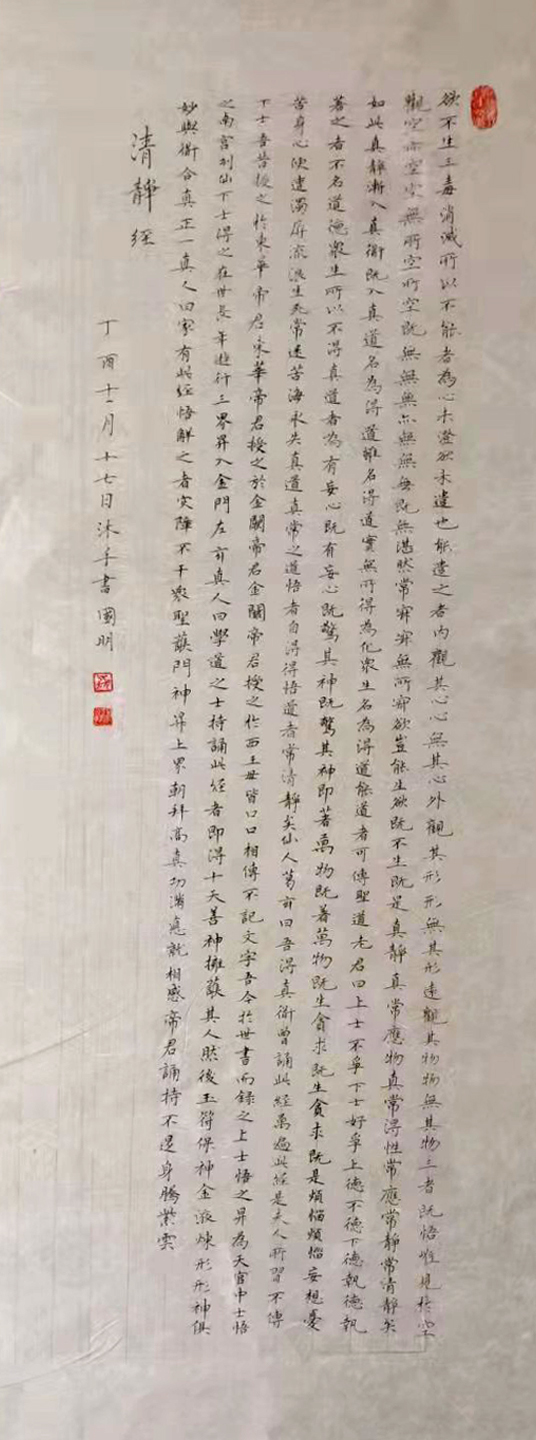 欲不生三毒消滅所以不能者為心未澄欲未遣也能遣之者內觀其心心無其心外觀其形形無其形遠觀其物物無其物三者既悟唯見於空
觀空亦空空無所空所空既無無無亦無無無既無湛然常寂寂無所寂欲豈能生欲既不生既是真靜真常應物真常得性常應常靜常清靜矣
如此真靜漸入真衜既入真道名為得道雖名得道實無所得為化衆生名為得道能道者可傳聖道老君曰上士不爭下士好爭上德不德下德執德執
著之者不名道德衆生所以不得真道者為有妄心既有妄心既驚其神既驚其神即著萬物既著萬物既生貪求既生貪求既是煩惱煩惱妄想憂
苦身心便遭濁辱流浪生死常迷苦海永失真道真常之道悟者自得得悟道者常清靜矣仙人葛亦曰吾得真衜曾誦此經萬遍此經是天人所習不傳
下士吾昔授之於東華帝君東華帝君授之於金闕帝君金闕帝君授之於西王母皆口口相傳不記文字吾今於世書而錄之上士悟之昇為天官中士悟
之南宮列仙下士得之在世長年遊行三界昇入金門左亦真人曰學道之士持誦此經者即得十天善神擁護其人然後玉符保神金液煉形形神俱
妙與衜合真正一真人曰家有此經悟解之者灾障不干衆聖護門神昇上界朝拜高真功滿德就相感帝君誦持不退身騰紫雲
清靜經
丁酉十一月十七日沐手書 國明